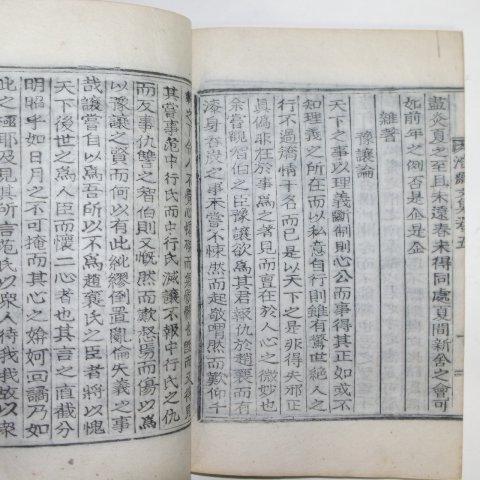 盡炎夏之至且未遠春來得同處夏間新舍之會可
如前年之例否是企是企
雜著
豫讓論
天下之事以理義斷制則心公而事得其正如或不
知理義之所在而以私意自行則雖有驚世絶人之
行不過矯情干名而已是以天下之是非得失邪正
眞僞非在於事爲之著而實在於人心之微妙也
余嘗觀智伯之臣豫讓欲爲其君報仇於趙襄而有
漆身呑炭之事未嘗不悚然而起敬喟然而歎仰千
其嘗事處中行氏而中行氏滅讓不報中行氏之仇
而反事仇讐之智伯則又慨然而歎怒惕而傷以爲
以豫讓之賢而何以有此紕繆倒置亂倫失義之事
哉讓嘗自以爲吾所以不爲趙襄氏之臣者將以愧
天下後世之爲人臣而懷二心者也其言之直截分
明昭乎如日月之不可掩而其心之婾婀回譎乃如
此之極耶及見其所言范氏以衆人待我我故以衆